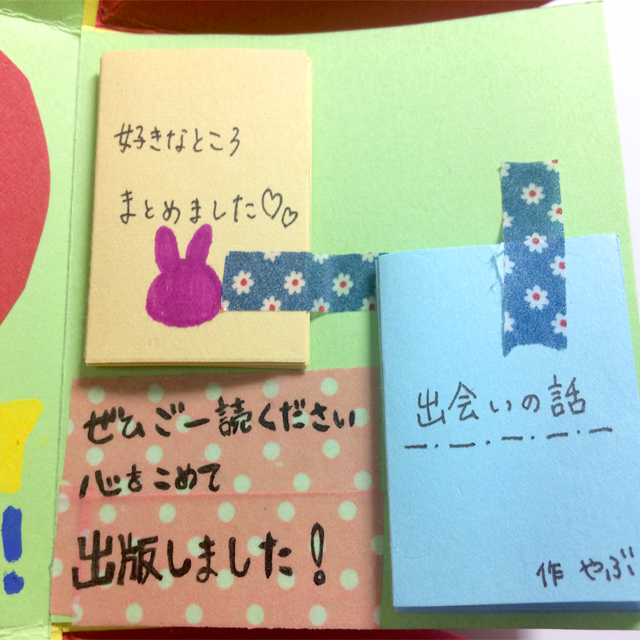 好きなところ
まとめました♡♡
ぜひご一読ください
心をこめて
出版しました!
出会いの話
作 やぶ
!